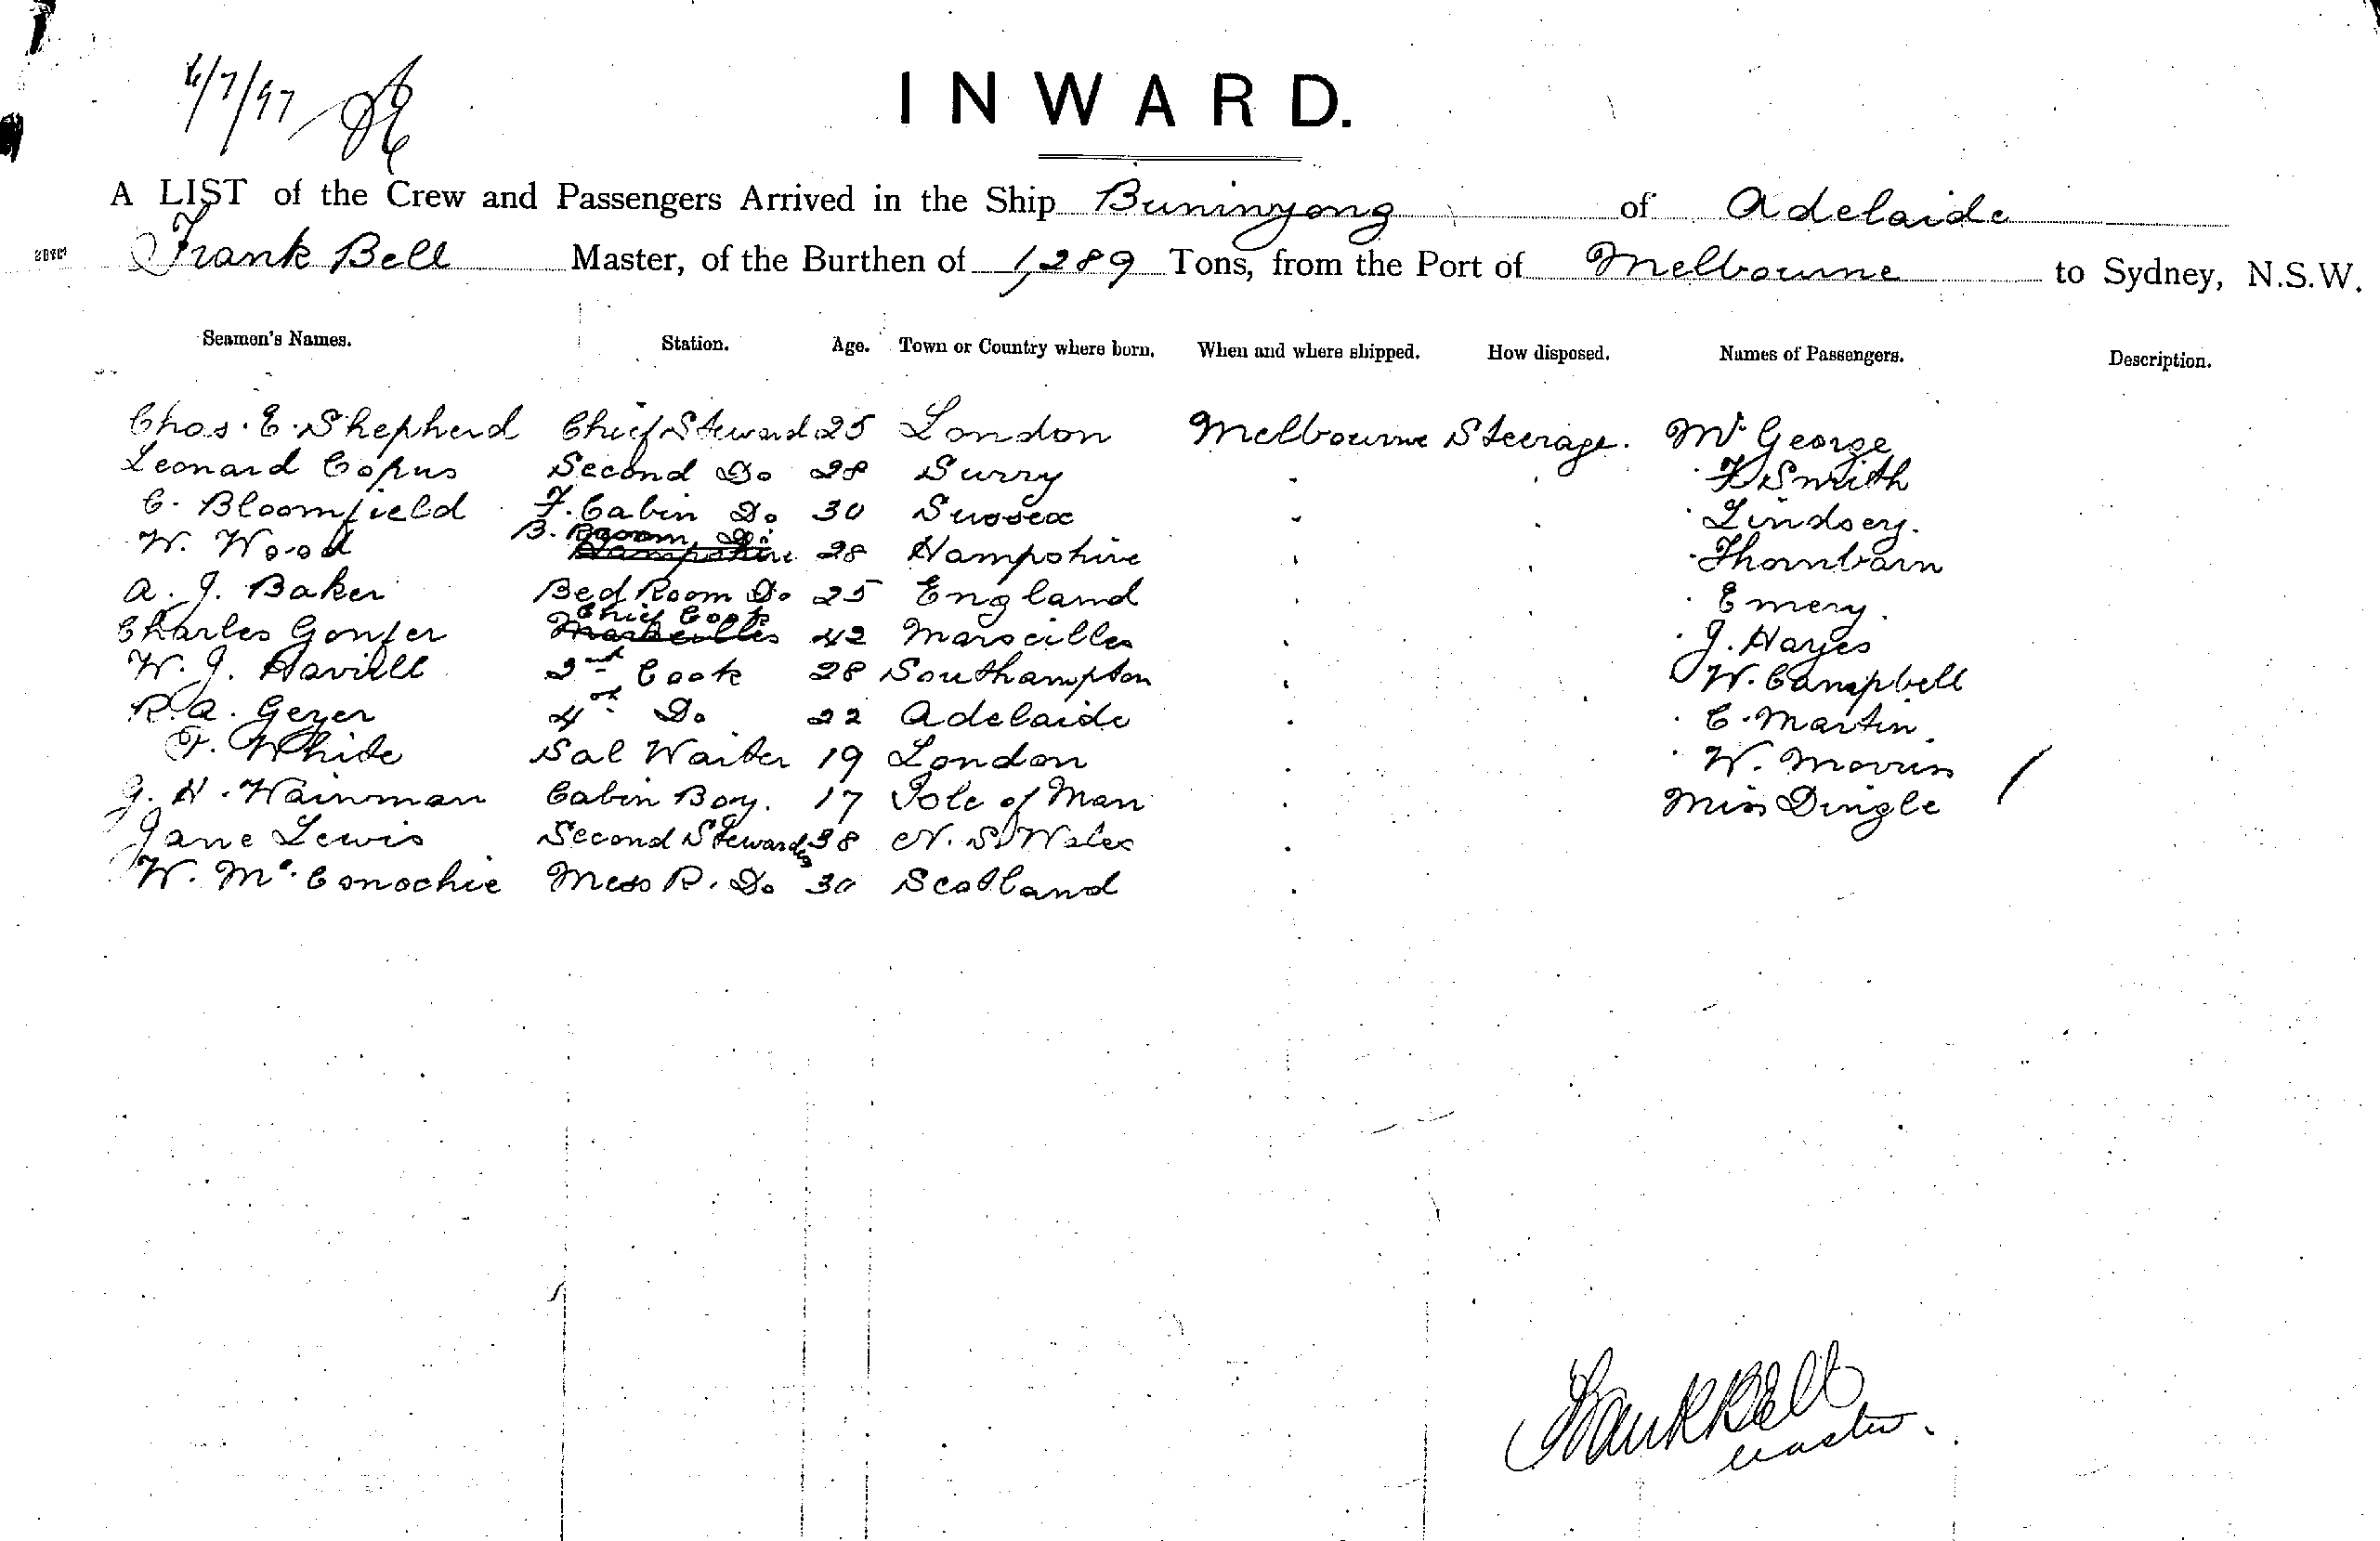 6/7/97
INWARD.
A LIST of the Crew and Passengers Arrived in the Ship Buninyong of Adelaide
Frank Bell Master, of the Burthen of 1,289 Tons, from the Port of Melbourne to Sydney, N.S.W.
Seamen's Names. Station. Age. Town or Country where born. When and where shipped. How disposed. Names of Passengers. Description.
Chas. E. Shepherd Chief Steward 25 London Melbourne Steerage. Mr George
Leonard Copus Second Do 28 Surry F Smith
C. Bloomfield F. Cabin Do 30 Sussex Lindsey.
W. Wood B. Room Do Hampshire 28 Hampshire Thornbarn
A. J. Baker Bed Room Do 25 England Emery.
Charles Gonfer Chief Cook Marseilles 42 Marseilles J. Hayes
W. J. Havill 2nd Cook 28 Southampton W. Campbell
R. A. Geyer 4th Do 22 Adelaide C. Martin.
F. White Sal Waiter 19 London W. Morris
J. H. Wainman Cabin Boy. 17 Isle of Man Miss Dingle
Jane Lewis Second Stewardess 38 N. S. Wales
W. Mc. Conochie Mess R. Do 30 Scotland
Frank Bell
Master.